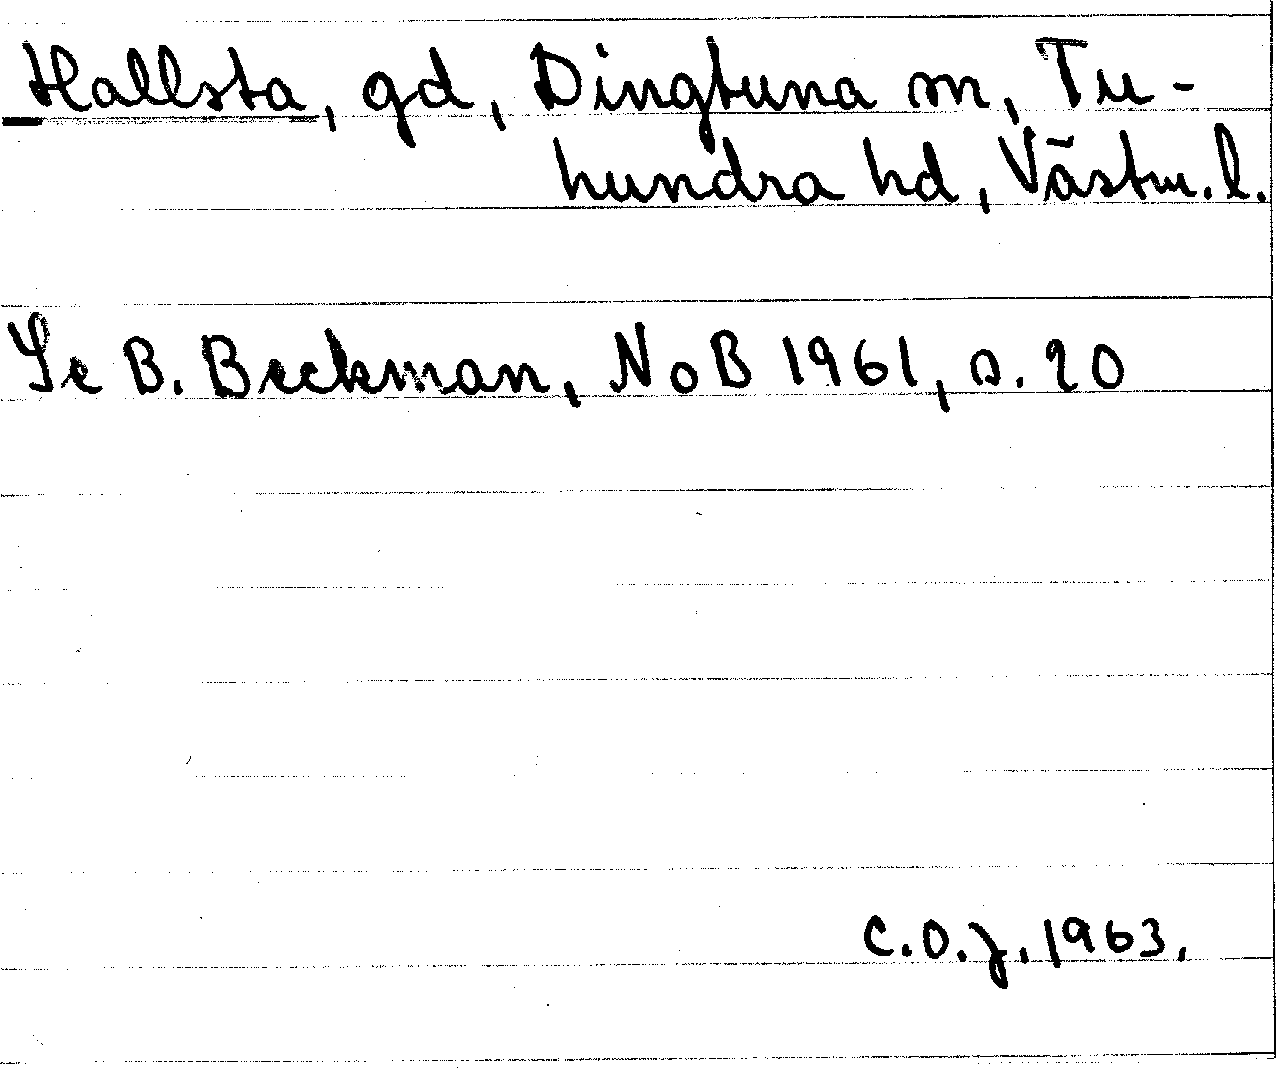 Hallsta, gd, Dingtuna sn, Tu-
hundra hd, Västm. l.
Se B. Beckman, NoB 1961, s. 20
C.O.J. 1963.